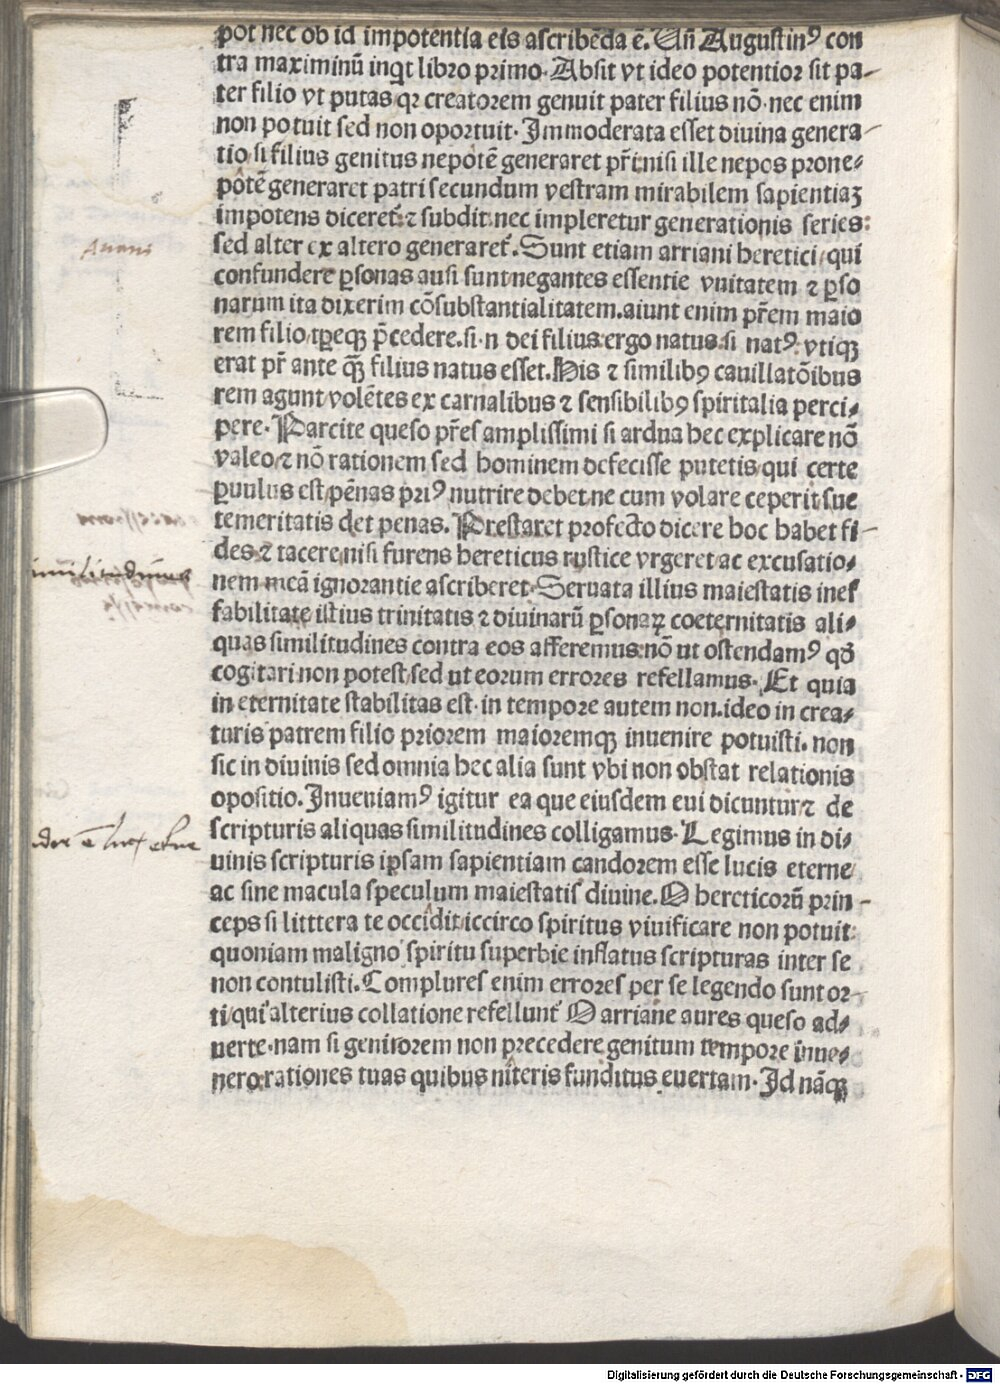 pot nec ob id impotentia eis ascribēda ē. Uñ Augustinꝰ con
tra maximinū inqͥt libro primo. Absit vt ideo potentior sit pa-
ter filio vt putas qꝛ creatorem genuit pater filius nō. nec enim
non potuit sed non oportuit. Immoderata esset diuina genera-
tio/ si filius genitus nepotē generaret pr̄i. nisi ille nepos prone-
potē generaret patri secundum vestram mirabilem sapientiaꝫ
impotens diceret᷑: ⁊ subdit: nec impleretur generationis series:
sed alter ex altero generaret᷑. Sunt etiam arriani heretici/ qui
confundere ꝑsonas ausi sunt negantes essentie vnitatem ⁊ ꝑso
narum ita dixerim cōsubstantialitatem. aiunt enim pr̄em maio
rem filio/ tꝑeqꝫ p̄cedere. si. n dei filius: ergo natus. si natꝰ: vtiqꝫ
erat pr̄ ante qꝫ̄ filius natus esset. His ⁊ similibꝰ cauillatōibus
rem agunt volētes ex carnalibus ⁊ sensibilibꝰ spiritalia perci-
pere. Parcite queso pr̄es amplissimi si ardua hec explicare nō
valeo/ ⁊ nō rationem sed hominem defecisse putetis/ qui certe
ꝑuulus est/ pēnas priꝰ nutrire debet. ne cum volare ceperit sue
temeritatis det penas. Prestaret profecto dicere hoc habet fi-
des. ⁊ tacere. nisi furens hereticus rustice vrgeret ac excusatio-
nem meā ignorantie ascriberet. Seruata illius maiestatis inef
fabilitate istius trinitatis ⁊ diuinarū ꝑsonaꝝ coeternitatis ali-
quas similitudines contra eos afferemus: nō ut ostendamꝰ qđ
cogitari non potest/ sed ut eorum errores refellamus. Et quia
in eternitate stabilitas est. in tempore autem non. ideo in crea-
turis patrem filio priorem maioremqꝫ inuenire potuisti. non
sic in diuinis sed omnia hec alia sunt vbi non obstat relationis
opositio. Inueniamꝰ igitur ea que eiusdem eui dicuntur: ⁊ de
scripturis aliquas similitudines colligamus. Legimus in di-
uinis scripturis ipsam sapientiam candorem esse lucis eterne
ac sine macula speculum maiestatis diuine. O hereticorū prin-
ceps si litttera te occidit/ iccirco spiritus viuificare non potuit:
quoniam maligno spiritu superbie inflatus scripturas inter se
non contulisti. Complures enim errores per se legendo sunt or-
ti/ qui alterius collatione refellunt᷑ O arriane aures queso ad-
uerte. nam si genitorem non precedere genitum tempore inue-
nero: rationes tuas quibus niteris funditus euertam. Id nāqꝫ
Digitalisierung gefördert durch die Deutsche Forschungsgemeinschaft - DFG